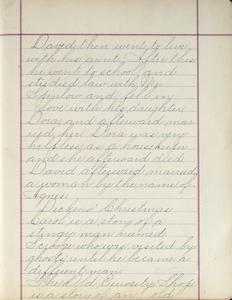 David then went to live
with his aunt, After this
he went to school, and
studied law with Mr
Spenlow and fell in
love with his daughter
Dora, and afterward mar
ried her. Dora was very
helpless as a housekeeper
and she afterward died
David afterward married
a woman by the name of
Agnes.
Dickens' Christmas
Carol is a story of a
stingy man named
Scrooge who was visited by
ghosts until he became a
different man.
The Old Curiosity Shop
is a story of an old